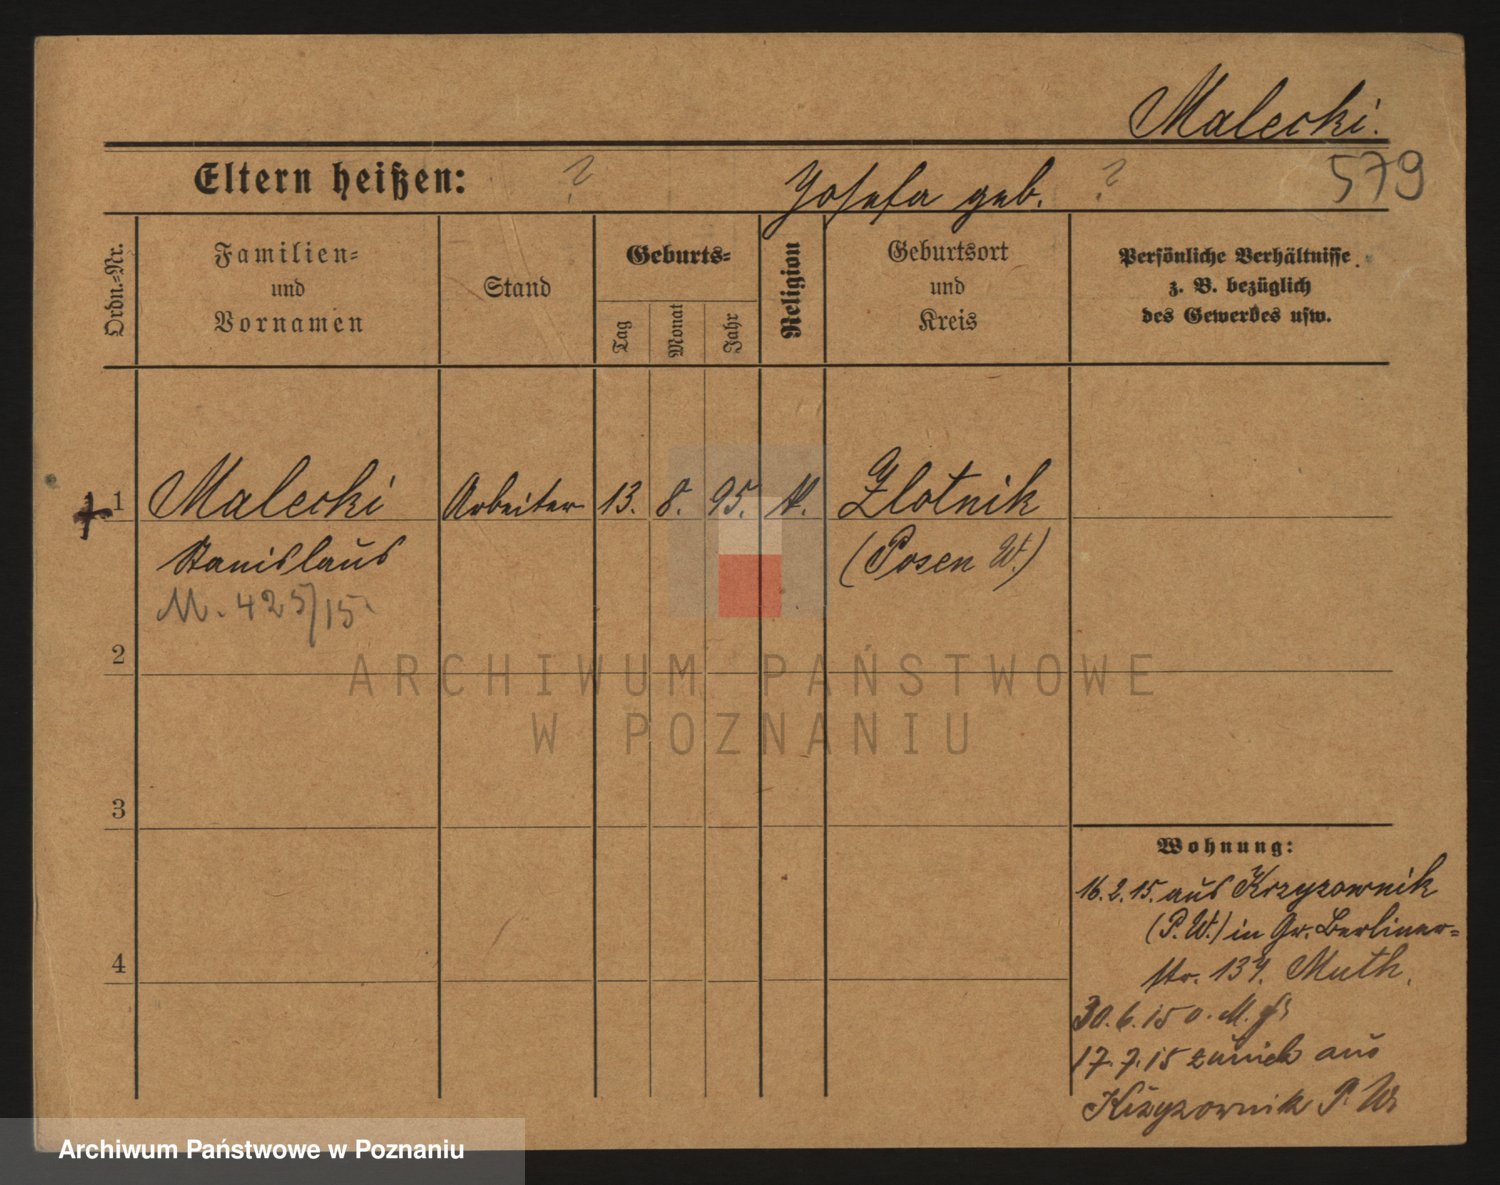 Malecki.
579
Eltern heißen: ? Josefa geb. ?
Ordn.-Nr.
Familien-
und
Vornamen
Stand
Geburts-
Tag
Monat
Jahr
Religion
Geburtsort
und
Kreis
Persönliche Verhältnisse
z. B. bezüglich
des Gewerbes usw.
1 Malecki Arbeiter 13. 8. 95. Zlotnik
Stanislaus (Posen W.)
M. 425/15
2
ARCHIWUM PAŃSTWOWE
W POZNANIU
3
Wohnung:
16.2.15. aus Krzyzownik
(P.W.) in Gr. Berliner-
str. 134. Muth.
30.6.15 o. M.
4
17.7.15 zurück aus
Krzyzownik P. W.
Archiwum Państwowe w Poznaniu